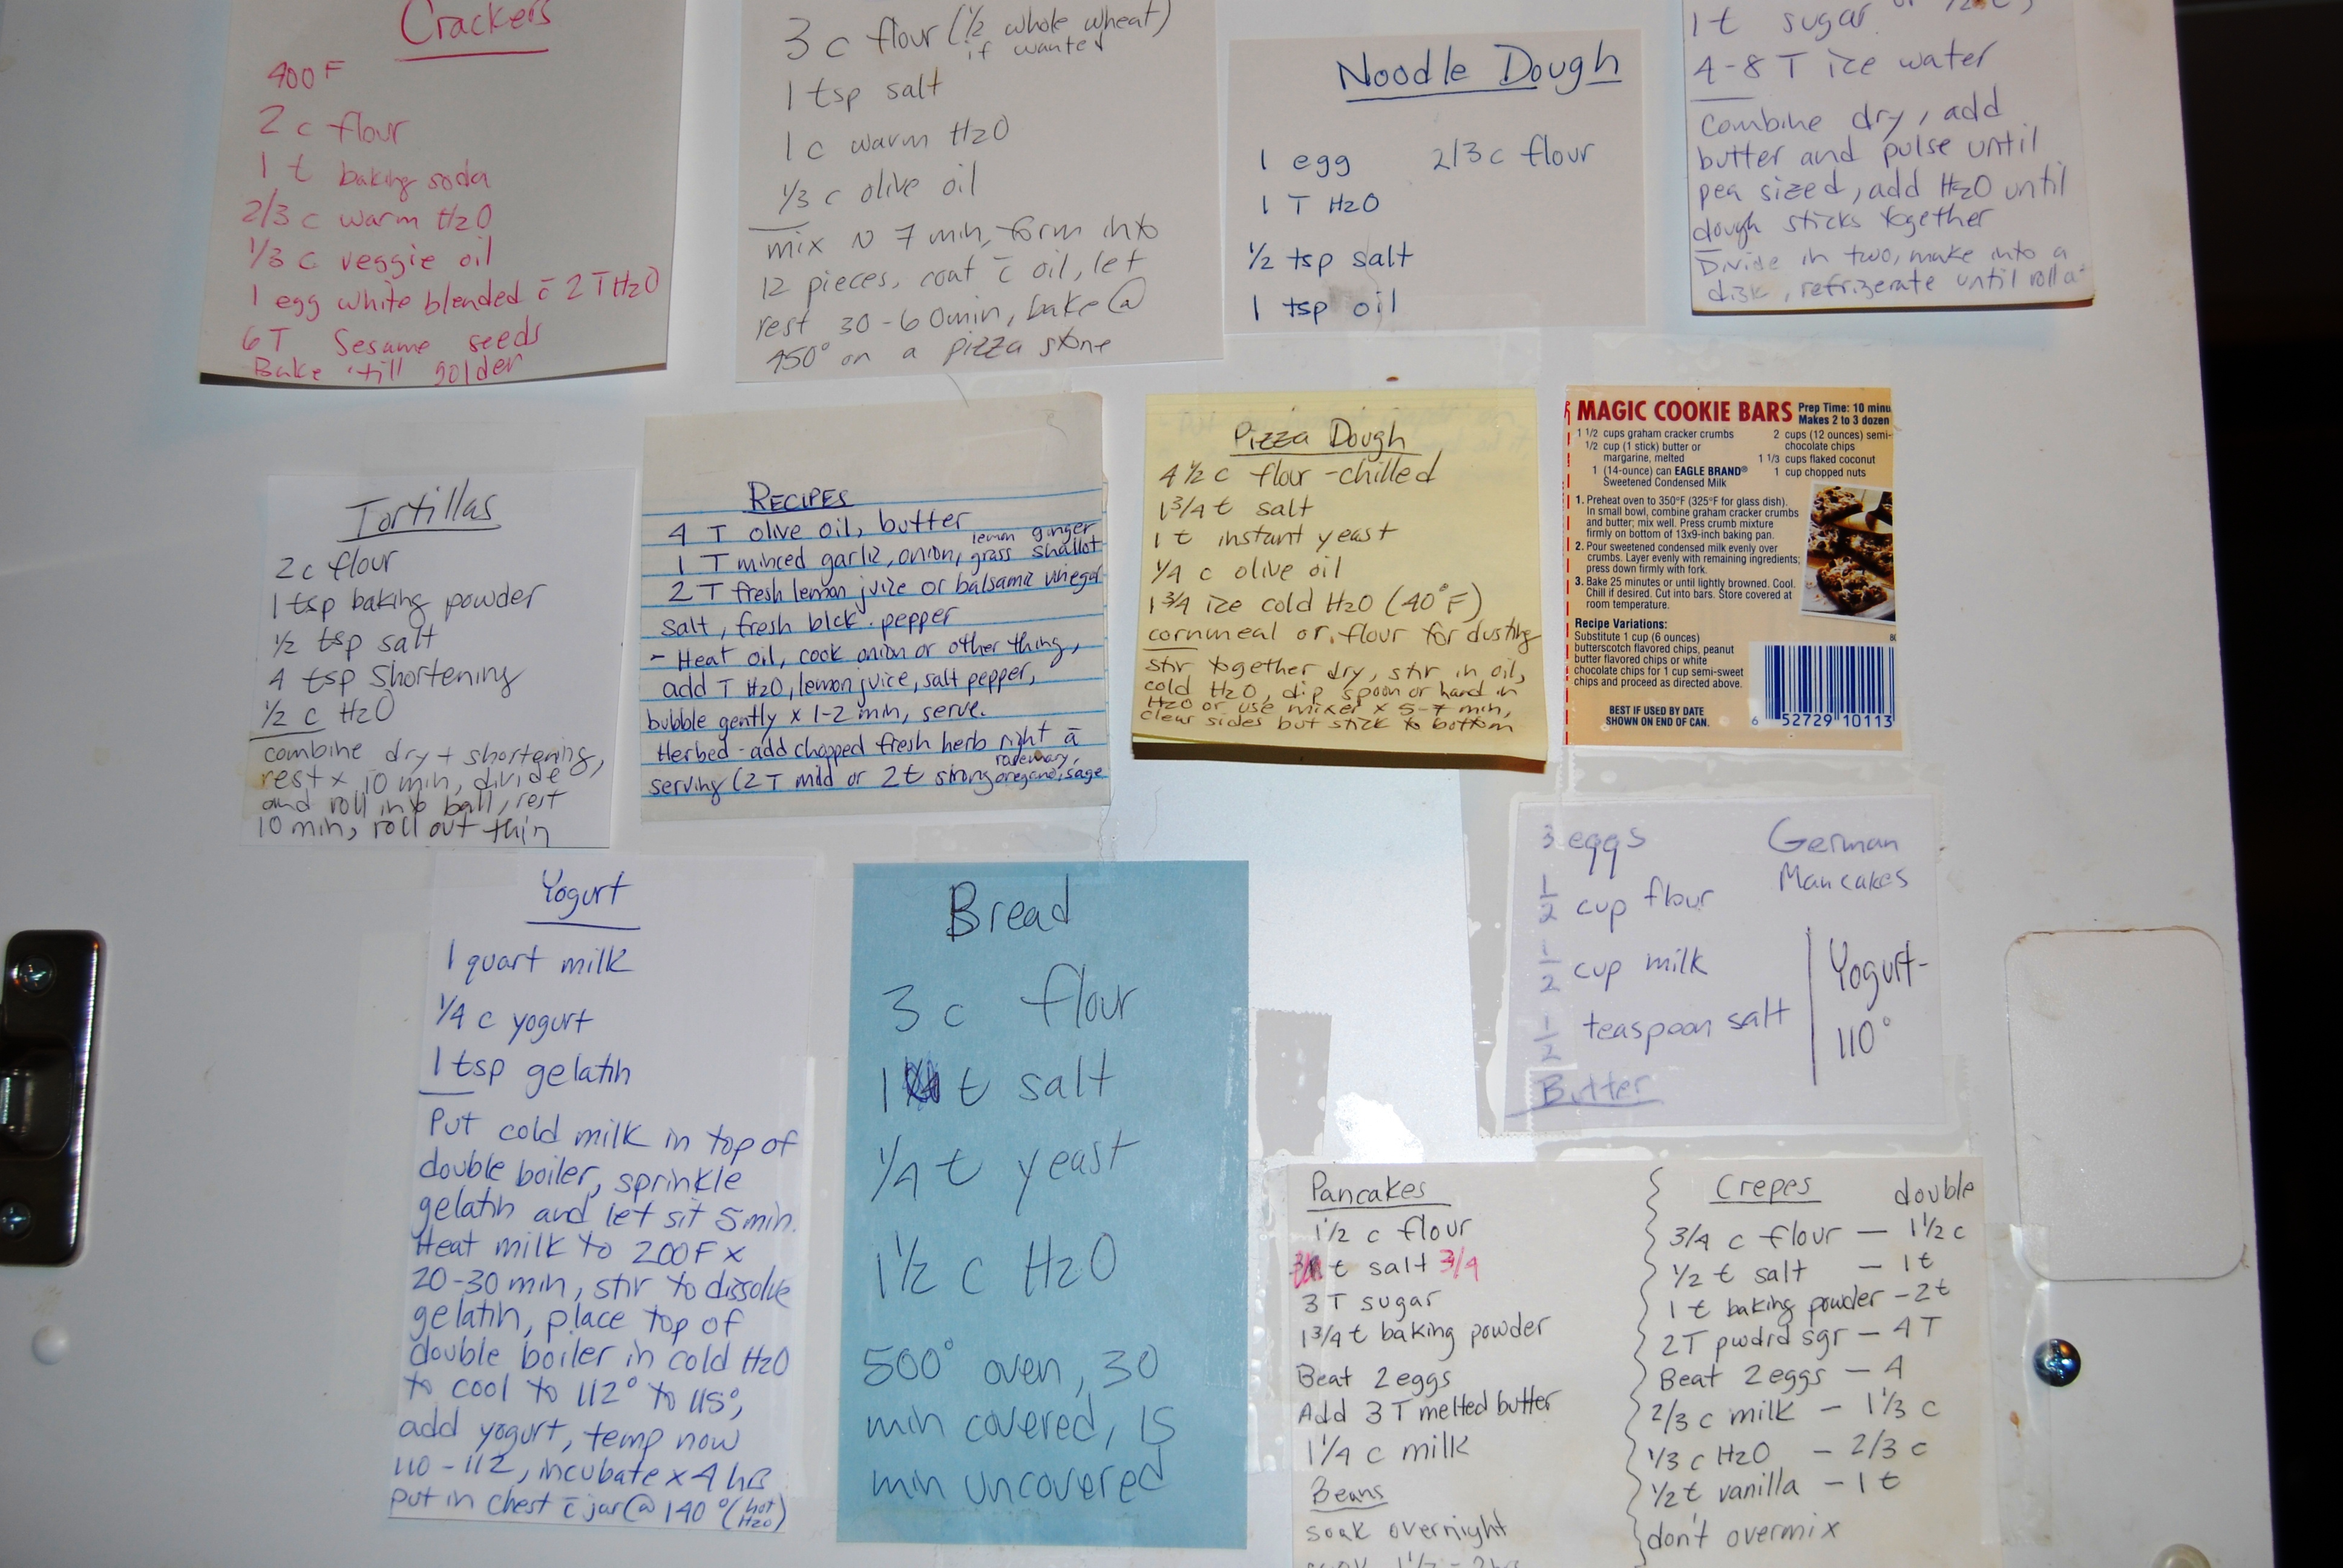 Crackers
400 F
2 c flour
1 t baking soda
2/3 c warm H2O
1/3 c veggie oil
1 egg white blended c̄ 2 T H2O
6 T Sesame seeds
Bake 'till golden
3 c flour (1/2 whole wheat)
if wanted
1 tsp salt
1 c warm H2O
1/3 c olive oil
mix ~ 7 min, form into
12 pieces, coat c̄ oil, let
rest 30-60min, bake @
450° on a pizza stone
Noodle Dough
1 egg 2/3 c flour
1 T H2O
1/2 tsp salt
1 tsp oil
1 t sugar
4-8 T ice water
combine dry, add
butter and pulse until
pea sized, add H2O until
dough sticks together
Divide in two, make into a
disk, refrigerate until roll
Tortillas
2 c flour
1 tsp baking powder
1/2 tsp salt
4 tsp shortening
1/2 c H2O
combine dry + shortening,
rest x 10 min, divide
and roll into ball, rest
10 min, roll out thin
RECIPES
4 T olive oil, butter
lemon ginger
1 T minced garlic, onion, grass shallot
2 T fresh lemon juice or balsamic vinegar
salt, fresh blck. pepper
- Heat oil, cook onion or other thing,
add T H2O, lemon juice, salt pepper,
bubble gently x 1-2 min, serve.
Herbed - add chopped fresh herb right ā
rosemary,
serving (2 T mild or 2 t strong oregano, sage
Pizza Dough
4 1/2 c flour - chilled
1 3/4 t salt
1 t instant yeast
1/4 c olive oil
1 3/4 ice cold H2O (40°F)
cornmeal or flour for dusting
stir together dry, stir in oil,
cold H2O, dip spoon or hand in
H2O or use mixer x 5-7 min,
clear sides but stick to bottom
MAGIC COOKIE BARS Prep Time: 10 minu
Makes 2 to 3 dozen
1 1/2 cups graham cracker crumbs
1/2 cup (1 stick) butter or
margarine, melted
1 (14-ounce) can EAGLE BRAND®
Sweetened Condensed Milk
2 cups (12 ounces) semi-
chocolate chips
1 1/3 cups flaked coconut
1 cup chopped nuts
1. Preheat oven to 350°F (325°F for glass dish).
In small bowl, combine graham cracker crumbs
and butter; mix well. Press crumb mixture
firmly on bottom of 13x9-inch baking pan.
2. Pour sweetened condensed milk evenly over
crumbs. Layer evenly with remaining ingredients;
press down firmly with fork.
3. Bake 25 minutes or until lightly browned. Cool.
Chill if desired. Cut into bars. Store covered at
room temperature.
Recipe Variations:
Substitute 1 cup (6 ounces)
butterscotch flavored chips, peanut
butter flavored chips or white
chocolate chips for 1 cup semi-sweet
chips and proceed as directed above.
BEST IF USED BY DATE
SHOWN ON END OF CAN.
6 52729 10113
Yogurt
1 quart milk
1/4 c yogurt
1 tsp gelatin
Put cold milk in top of
double boiler, sprinkle
gelatin and let sit 5 min.
Heat milk to 200F x
20-30 min, stir to dissolve
gelatin, place top of
double boiler in cold H2O
to cool to 112° to 115°,
add yogurt, temp now
110-112, incubate x 4 hrs
put in chest c̄ jar @ 140° (hot H2O)
Bread
3 c flour
1 t salt
1/4 t yeast
1 1/2 c H2O
500° oven, 30
min covered, 15
min uncovered
German
Mancakes
3 eggs
1/2 cup flour
1/2 cup milk
1/2 teaspoon salt
Butter
Yogurt-
110°
Pancakes
1 1/2 c flour
t salt 3/4
3 T sugar
1 3/4 t baking powder
Beat 2 eggs
Add 3 T melted butter
1 1/4 c milk
Beans
soak overnight
Crepes double
3/4 c flour — 1 1/2 c
1/2 t salt — 1 t
1 t baking powder - 2 t
2 T pwdrd sgr — 4 T
Beat 2 eggs — 4
2/3 c milk — 1 1/3 c
1/3 c H2O — 2/3 c
1/2 t vanilla — 1 t
don't overmix